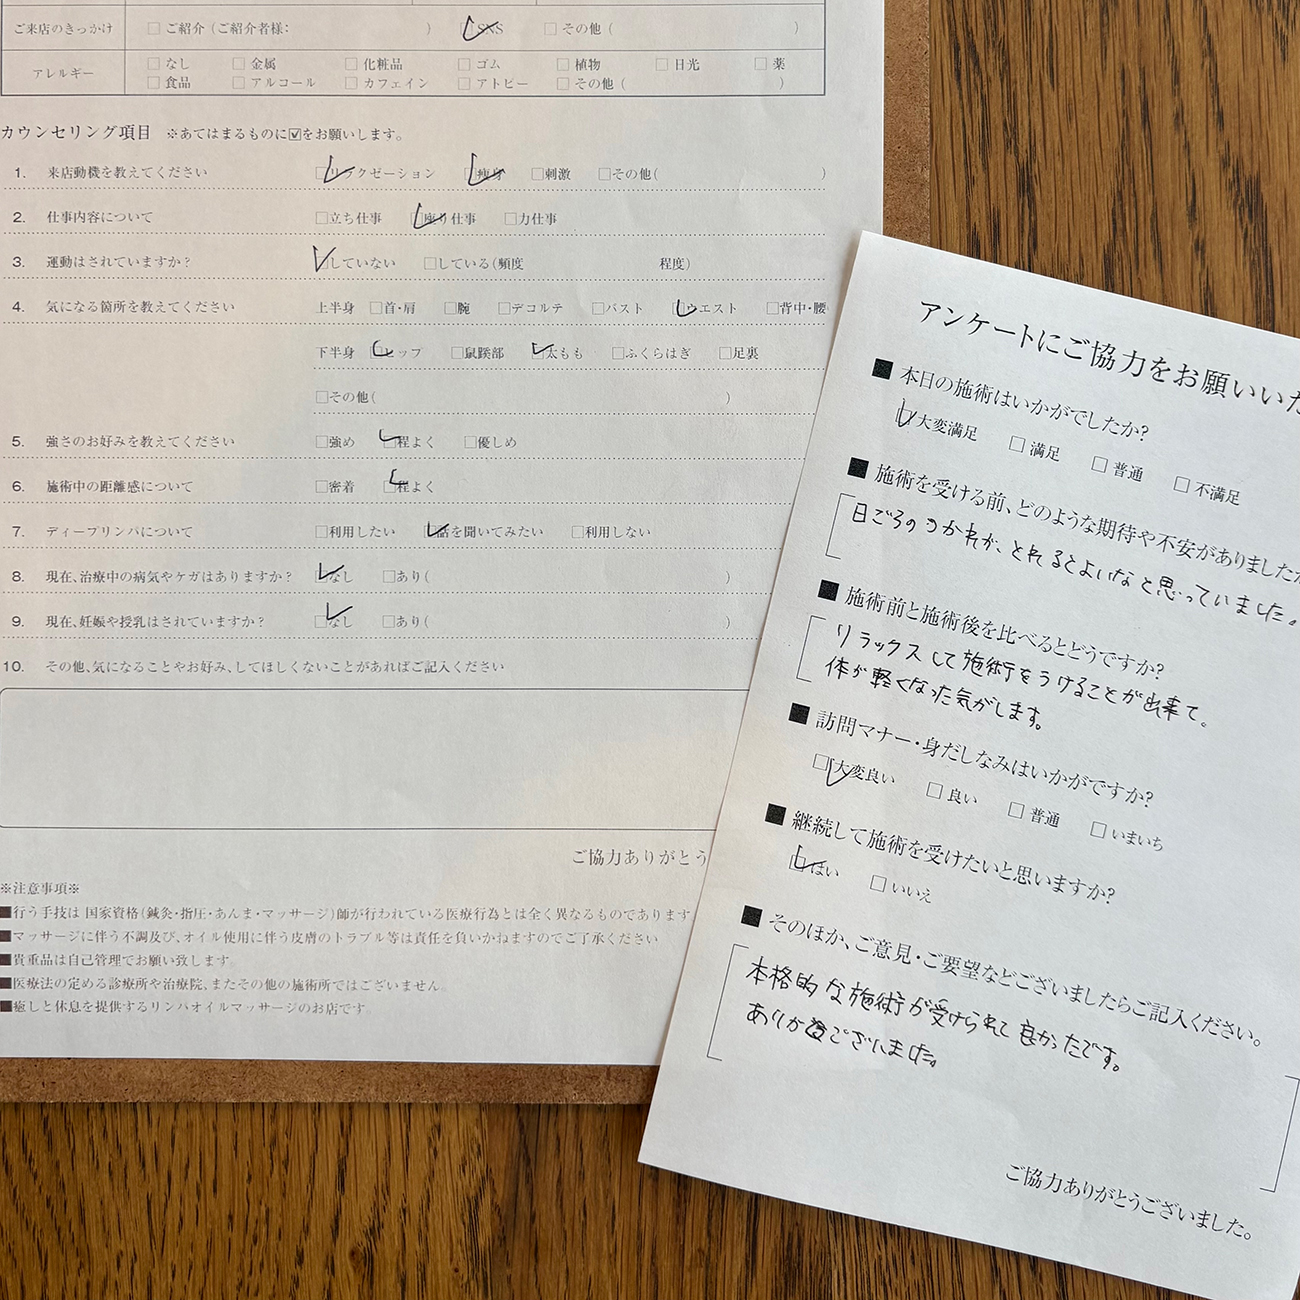 ご来店のきっかけ □ ご紹介（ご紹介者様： ） ☑ SNS □ その他（ ）
アレルギー □ なし □ 金属 □ 化粧品 □ ゴム □ 植物 □ 日光 □ 薬
□ 食品 □ アルコール □ カフェイン □ アトピー □ その他（ ）
カウンセリング項目 ※あてはまるものに☑をお願いします。
1. 来店動機を教えてください ☑リラクゼーション ☑痩身 □刺激 □その他( )
2. 仕事内容について □立ち仕事 ☑座り仕事 □力仕事
3. 運動はされていますか？ ☑していない □している(頻度 程度)
4. 気になる箇所を教えてください 上半身 □首・肩 □腕 □デコルテ □バスト ☑ウエスト □背中・腰
下半身 ☑ヒップ □鼠蹊部 ☑太もも □ふくらはぎ □足裏
□その他( )
5. 強さのお好みを教えてください □強め ☑程よく □優しめ
6. 施術中の距離感について □密着 ☑程よく
7. ディープリンパについて □利用したい ☑話を聞いてみたい □利用しない
8. 現在、治療中の病気やケガはありますか？ ☑なし □あり( )
9. 現在、妊娠や授乳はされていますか？ ☑なし □あり( )
10. その他、気になることやお好み、してほしくないことがあればご記入ください
ご協力ありがとう
※注意事項※
■行う手技は 国家資格(鍼灸・指圧・あんま・マッサージ)師が行われている医療行為とは全く異なるものであります
■マッサージに伴う不調及び、オイル使用に伴う皮膚のトラブル等は責任を負いかねますのでご了承ください
■貴重品は自己管理でお願い致します。
■医療法の定める診療所や治療院、またその他の施術所ではございません。
■癒しと休息を提供するリンパオイルマッサージのお店です。
アンケートにご協力をお願いいた
■ 本日の施術はいかがでしたか？
☑大変満足 □ 満足 □ 普通 □ 不満足
■ 施術を受ける前、どのような期待や不安がありましたか
日ごろのつかれが、とれるとよいなと思っていました。
■ 施術前と施術後を比べるとどうですか？
リラックスして施術をうけることが出来て。
体が軽くなった気がします。
■ 訪問マナー・身だしなみはいかがですか？
☑大変良い □ 良い □ 普通 □ いまいち
■ 継続して施術を受けたいと思いますか？
☑はい □ いいえ
■ そのほか、ご意見・ご要望などございましたらご記入ください。
本格的な施術が受けられて良かったです。
ありがとうございました。
ご協力ありがとうございました。